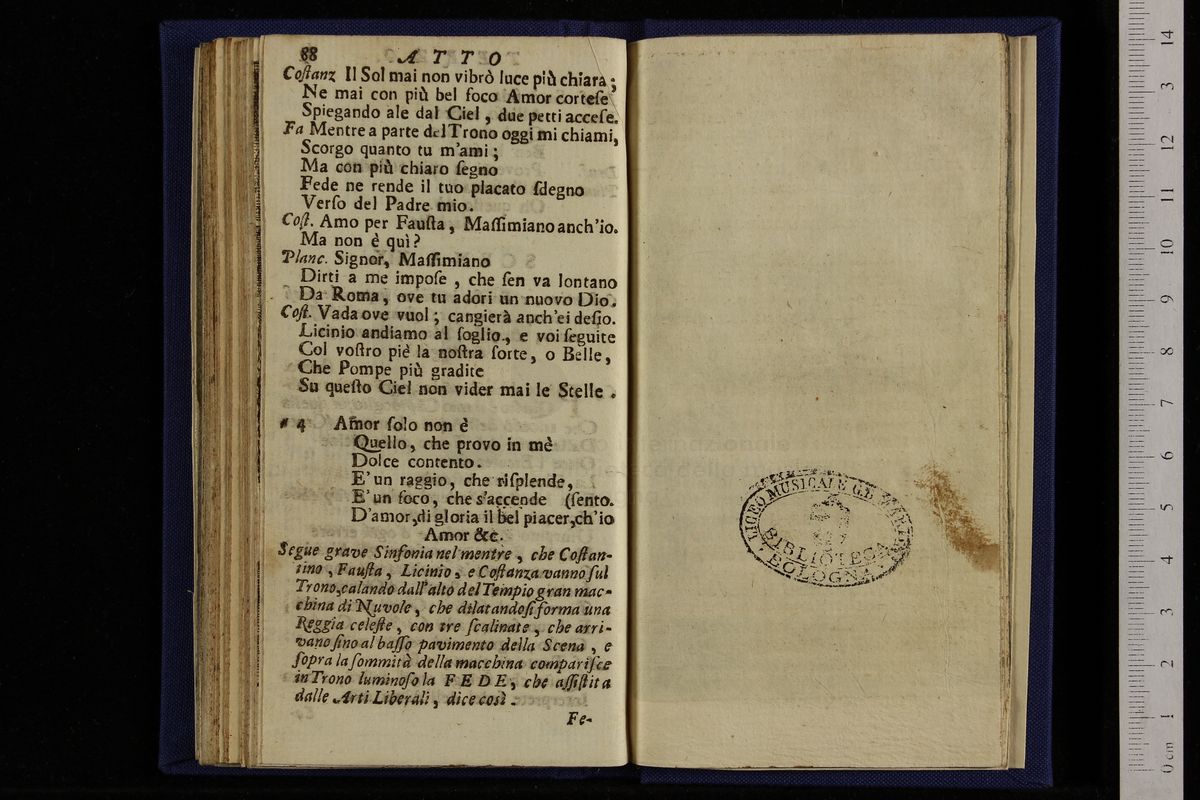 88 A T T O
Coſtanz Il Sol mai non vibrò luce più chiara;
Ne mai con più bel foco Amor corteſe
Spiegando ale dal Ciel, due petti acceſe.
Fa Mentre a parte del Trono oggi mi chiami,
Scorgo quanto tu m'ami;
Ma con più chiaro ſegno
Fede ne rende il tuo placato ſdegno
Verſo del Padre mio.
Coſt. Amo per Fauſta, Maſſimiano anch'io.
Ma non è quì?
Planc. Signor, Maſſimiano
Dirti a me impoſe, che ſen va lontano
Da Roma, ove tu adori un nuovo Dio.
Coſt. Vada ove vuol; cangierà anch'ei deſio.
Licinio andiamo al ſoglio, e voi ſeguite
Col voſtro piè la noſtra ſorte, o Belle,
Che Pompe più gradite
Su queſto Ciel non vider mai le Stelle.
4 Amor ſolo non è
Quello, che provo in mè
Dolce contento.
E' un raggio, che riſplende,
E' un foco, che s'accende (ſento.
D'amor, di gloria il bel piacer, ch'io
Amor &c.
Segue grave Sinfonia nel mentre, che Coſtan-
tino, Fauſta, Licinio, e Coſtanza vanno ſul
Trono, calando dall'alto del Tempio gran mac-
china di Nuvole, che dilatandoſi forma una
Reggia celeſte, con tre ſcalinate, che arri-
vano ſino al baſſo pavimento della Scena, e
ſopra la ſommità della macchina compariſce
in Trono luminoſo la FEDE, che aſſiſtita
dalle Arti Liberali, dice così.
Fe-
LICEO MUSICALE G.B. MARTINI
BIBLIOTECA
BOLOGNA
0 cm 1 2 3 4 5 6 7 8 9 10 11 12 3 14